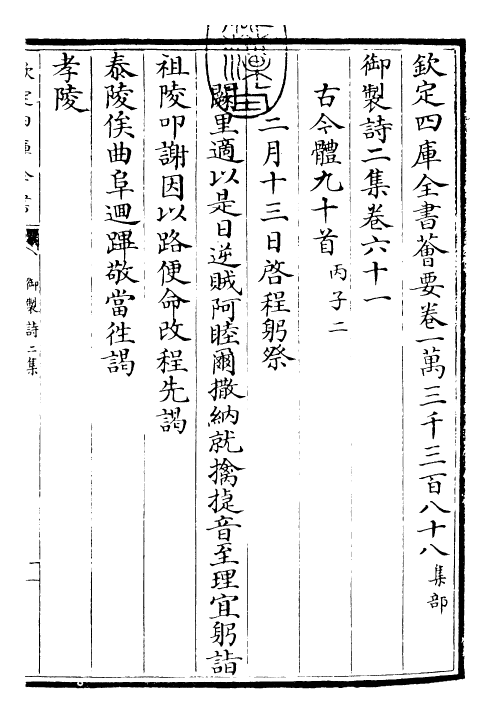 欽定四庫全書薈要卷一萬三千三百八十八集部
御製詩二集卷六十一
古今體九十首丙子二
二月十三日啓程躬祭
闕里適以是日逆賊阿睦爾撒納就擒㨗音至理宜躬詣
祖陵叩謝因以路便命改程先謁
泰陵俟曲阜迴蹕敬當徃謁
孝陵
欽定四庫全書
御製詩二集